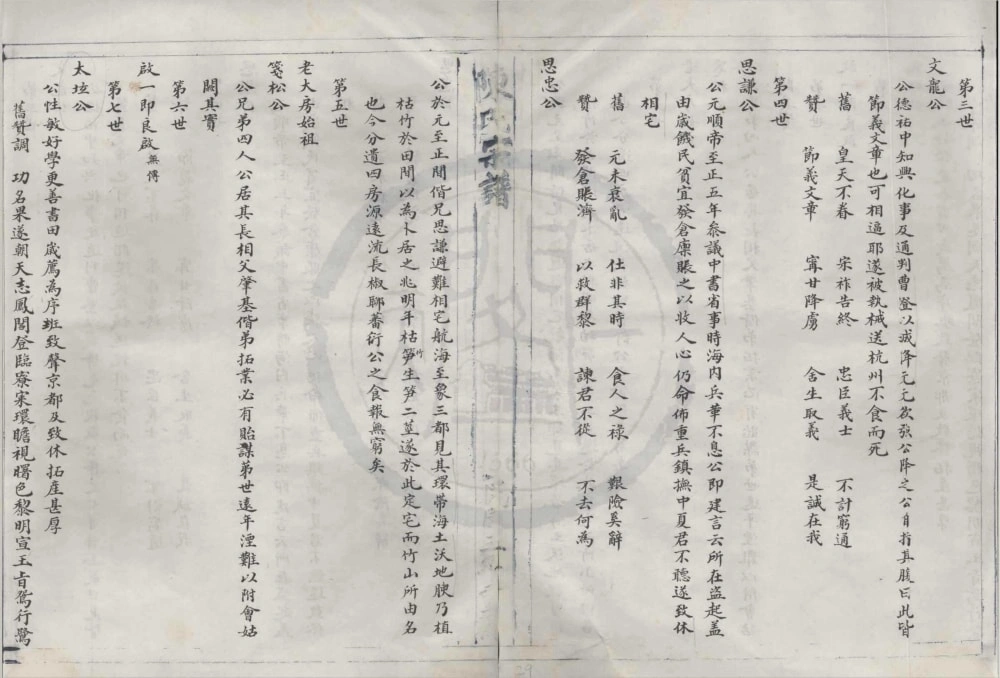 第三世
文龍公
公德祐中知興化事及通判曹登以減降元元欲強公降之公自指其腹曰此皆
節義文章也可相逼耶遂被執械送杭州不食而死
舊 皇天不眷 宋祚告終 忠臣義士 不計窮通
贊 節義文章 寗甘降虜 舍生取義 是誠在我
第四世
思謙公
公元順帝至正五年叅議中書省事時海内兵革不息公即建言云所在盗起蓋
由歲饑民貧宜發倉廪賬之以收人心仍命佈重兵鎮撫中夏君不聽遂致休
相宅
舊 元末衰亂 仕非其時 食人之禄 艱險奚辭
贊 發倉賬濟 以救群黎 諫君不從 不去何為
思忠公
公於元至正間偕兄思謙避難相宅航海至象三都見其環帶海土沃地腴乃植
枯竹於田間以為卜居之兆明年枯竹笋生笋二莖遂於此定宅而竹山所由名
也今分遺四房源遠流長椒聊蕃衍公之食報無窮矣
第五世
老大房始祖
箋松公
公兄第四人公居其長相父肇基偕弟拓業必有貽謀第世遠年湮難以附會姑
闕其實
第六世
啟一即良啟無傳
第七世
太垃公
公性敏好學更善書田歲薦為序班致聲京都及致休拓産甚厚
舊贊調 功名果遂朝天志鳳閣登臨寮寀環瞻視曙色黎明宣玉旨鴛行鷺
陳氏宗譜
29